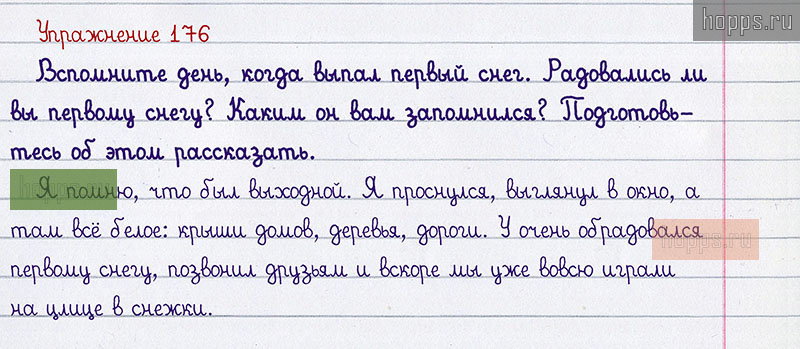 hopps.ru
Упражнение 176
Вспомните день, когда выпал первый снег. Радовались ли
вы первому снегу? Каким он вам запомнился? Подготовь-
тесь об этом рассказать.
Я помню, что был выходной. Я проснулся, выглянул в окно, а
там всё белое: крыши домов, деревья, дороги. У очень обрадовался
hopps.ru
первому снегу, позвонил друзьям и вскоре мы уже вовсю играли
на улице в снежки.